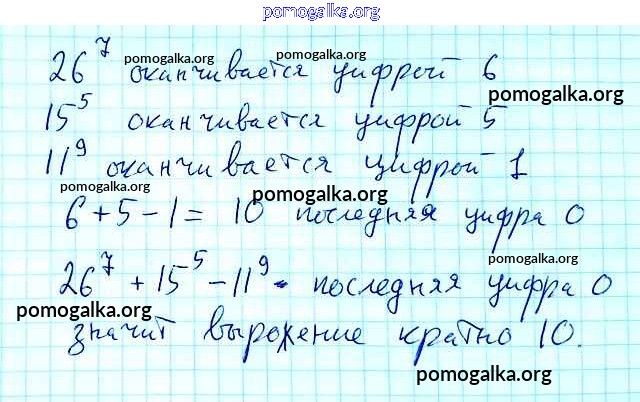 pomogalka.org
26⁷ оканчивается цифрой 6
pomogalka.org pomogalka.org
pomogalka.org
15⁵ оканчивается цифрой 5
11⁹ оканчивается цифрой 1
pomogalka.org pomogalka.org
6 + 5 - 1 = 10 последняя цифра 0
pomogalka.org
26⁷ + 15⁵ - 11⁹ - последняя цифра 0
pomogalka.org
значит выражение кратно 10.
pomogalka.org